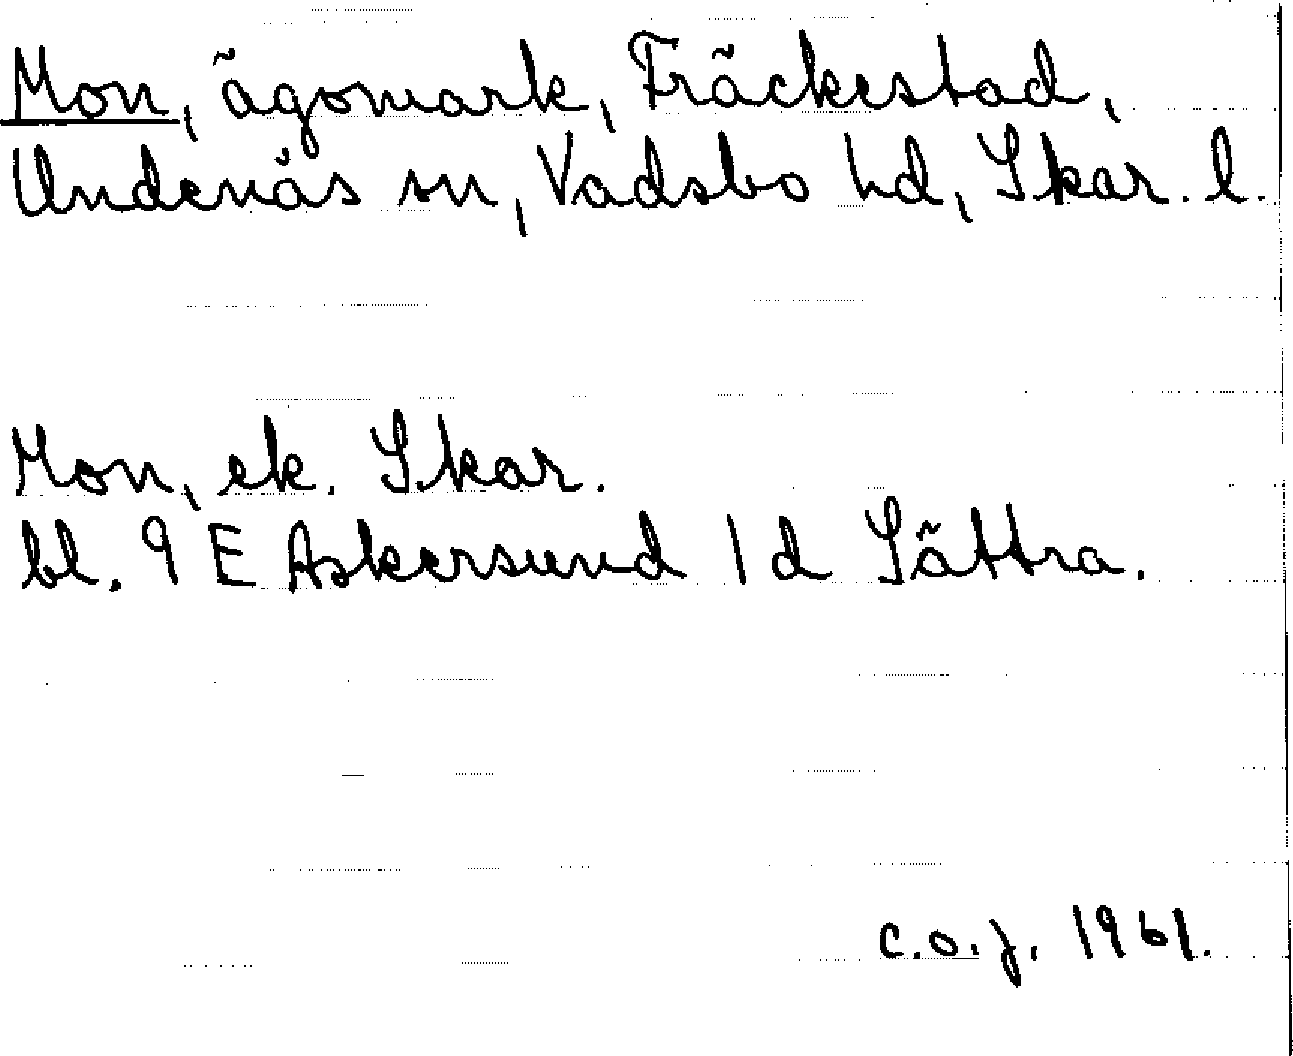 Mon, ägomark, Fräckestad,
Undenäs sn, Vadsbo hd, Skar. l.
Mon, ek. Skar.
bl. 9 E Askersund 1 d Sättra.
C.O.J. 1961.